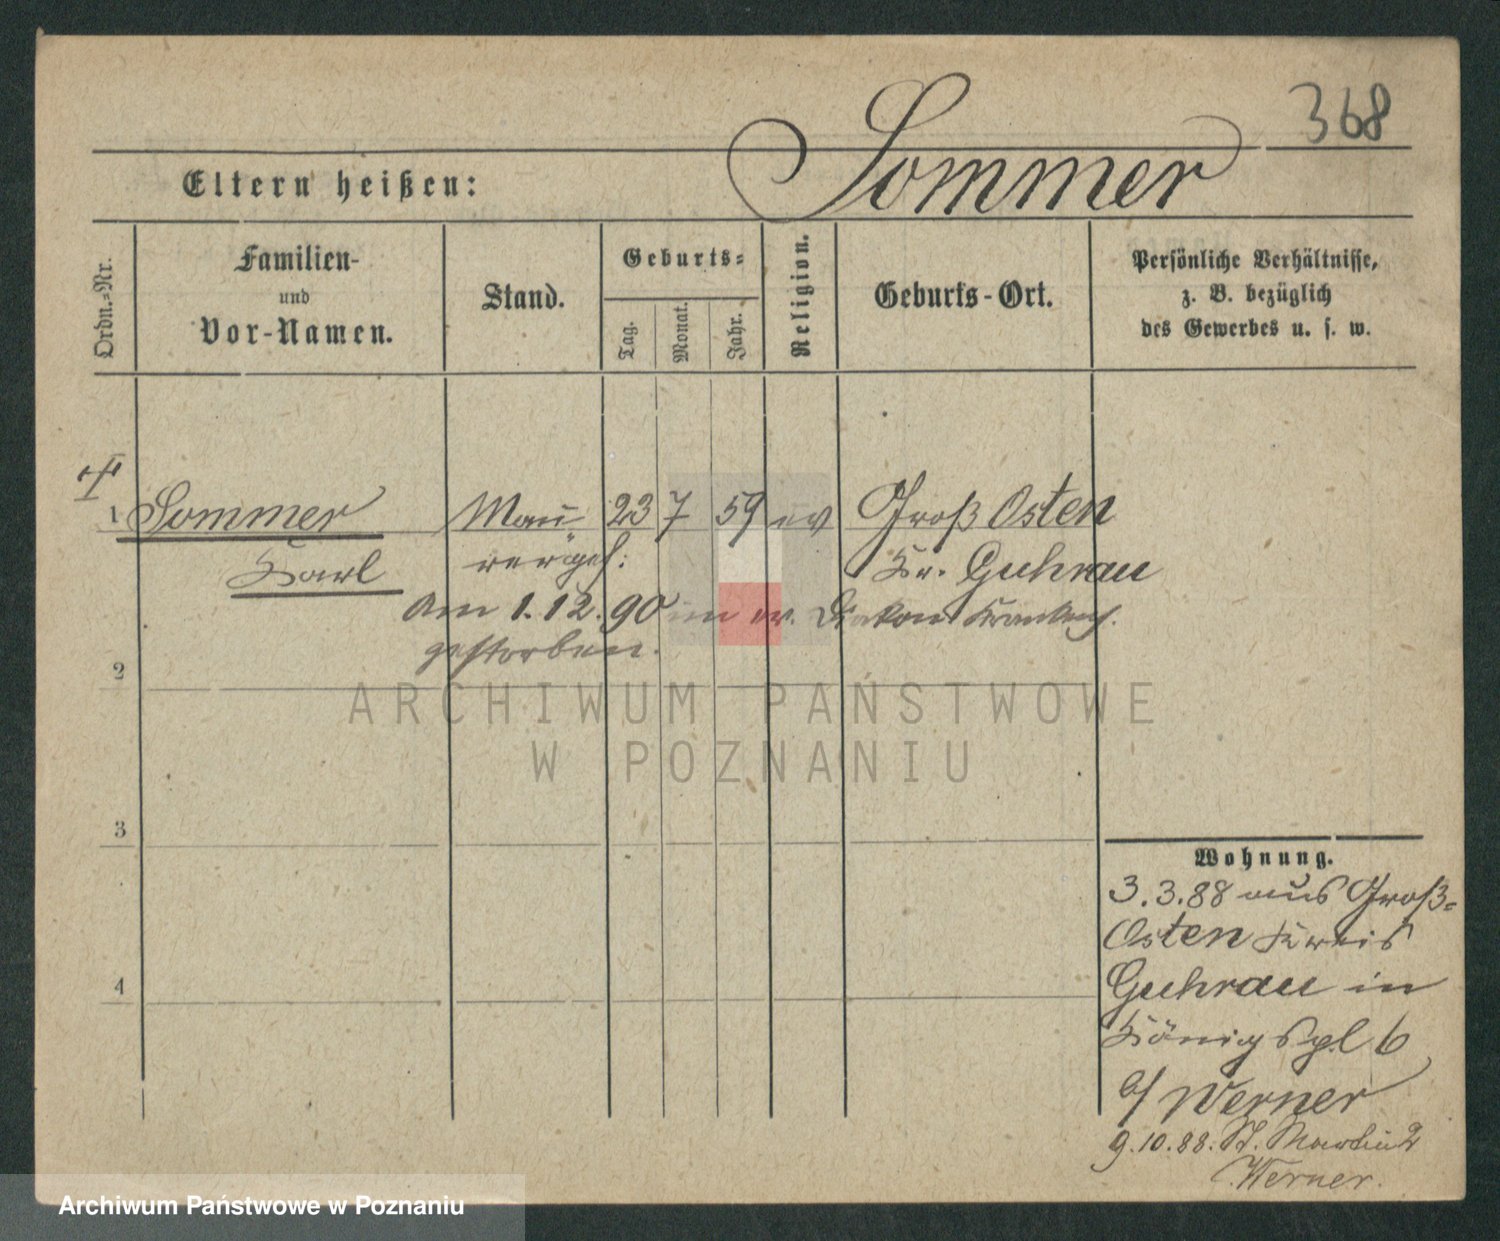 368
Sommer
Eltern heißen:
Ordn.=Nr.
Familien-
und
Vor-Namen.
Stand.
Geburts=
Tag.
Monat.
Jahr.
Religion.
Geburts-Ort.
Persönliche Verhältnisse,
z. B. bezüglich
des Gewerbes u. s. w.
1 Sommer 23 7 59 ev Groß Osten
Karl Kr. Guhrau
Am 1.12.90 im ev. Diakon Krankenh.
gestorben.
2
ARCHIWUM PAŃSTWOWE
W POZNANIU
3
4
Wohnung.
3.3.88 aus Groß=
Osten Kreis
Guhrau in
Königspl 6
b/ Werner
9.10.88. St. Martin 2
Werner.
Archiwum Państwowe w Poznaniu